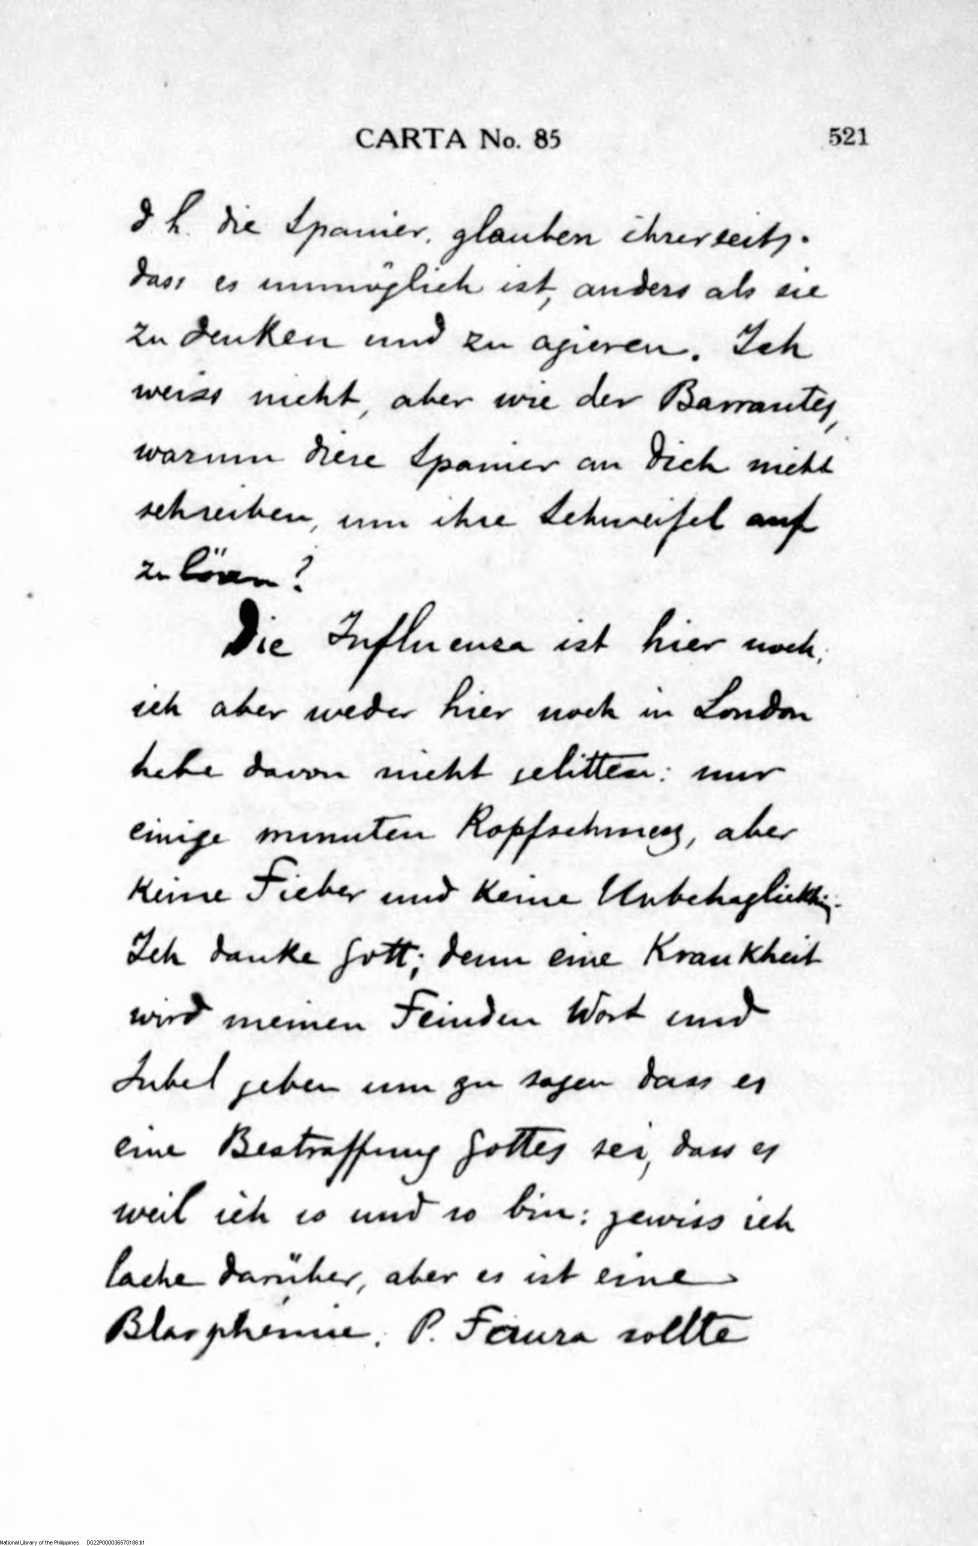 CARTA No. 85 521
d h. die Spanier, glauben ihrerseits.
dass es unmöglich ist, anders als sie
zu denken und zu agieren. Ich
weiss nicht, aber wie der Barrantes,
warum diese Spanier an Dich nicht
schreiben, um ihre Schweifel auf
zu lösen?
Die Influenza ist hier noch;
ich aber weder hier noch in London
habe davon nicht gelitten: nur
einige minuten Kopfschmerz, aber
keine Fieber und keine Unbehaglichk
Ich danke Gott; denn eine Krankheit
wird meinen Feinden Wort und
Jubel geben um zu sagen dass es
eine Bestraffung Gottes sei, dass es
weil ich so und so bin: gewiss ich
lache darüber, aber es ist eine
Blasphemie. P. Faura sollte
National Library of the Philippines